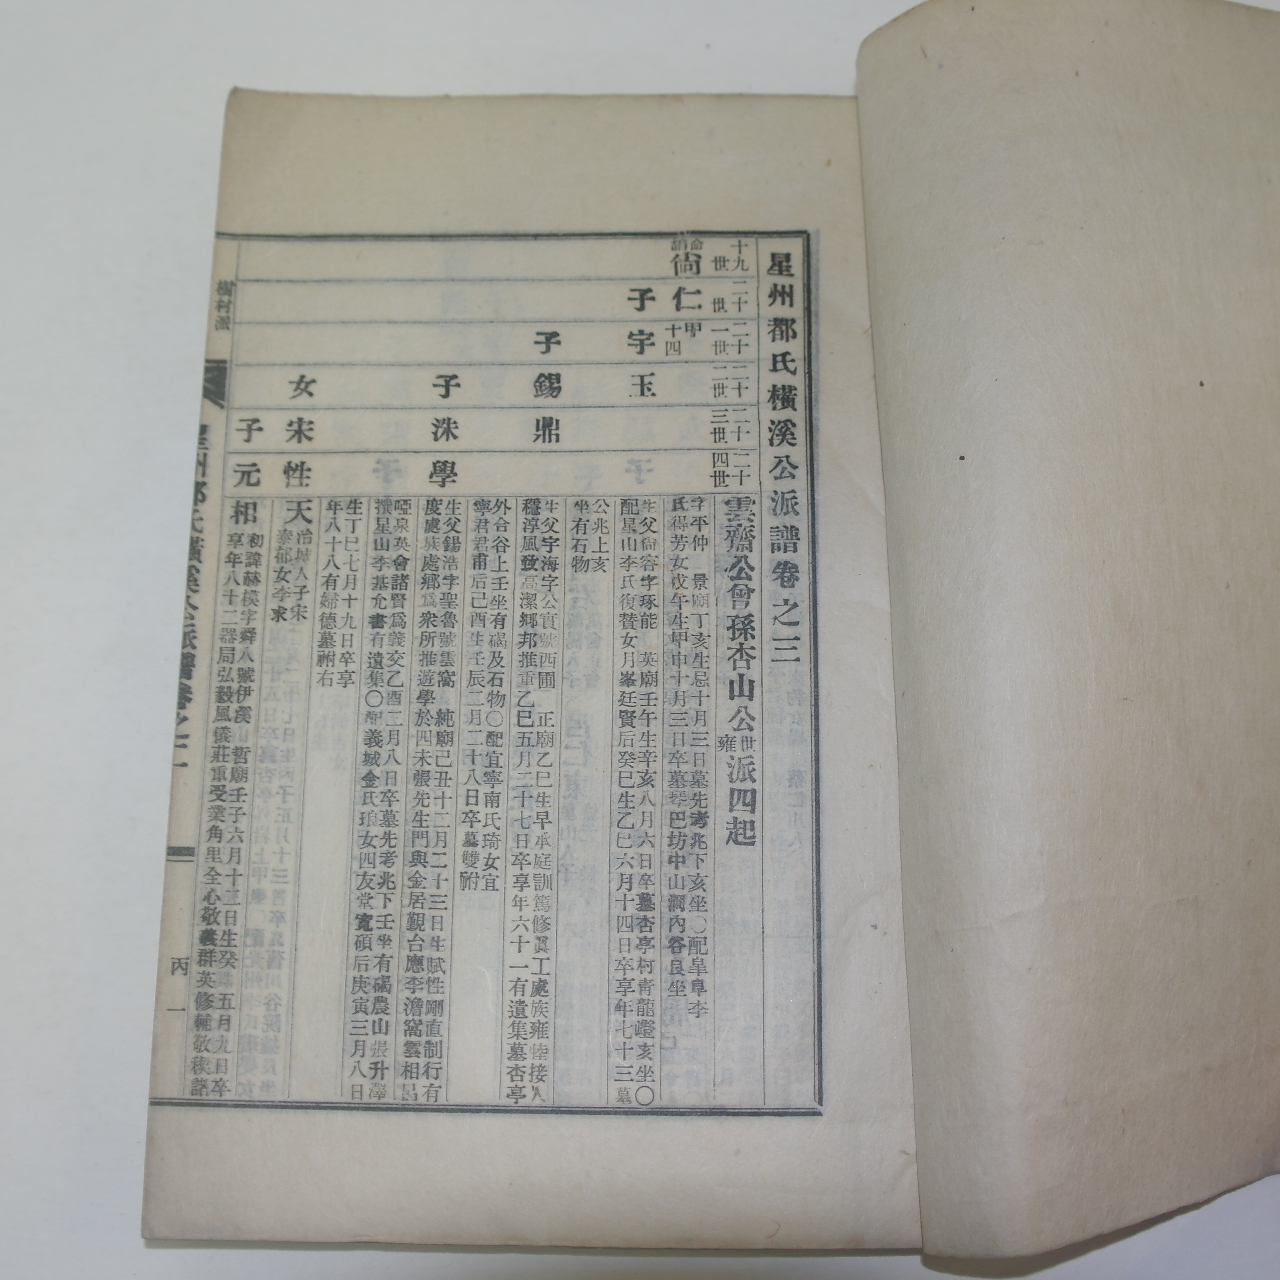 星州都氏橫溪公派譜卷之三
十九世
二十世
二十一世
二十二世
二十三世
二十四世
雲齋公曾孫杏山公世雍派四起
尙仁
甲十四
字平仲 景廟丁亥生忌十月三日墓先考兆下亥坐〇配皐阜李
氏得芳女戊午生甲申十月三日卒墓琴巴坊中山澗內谷艮坐
子宇玉
生父尙容字琢能 英廟壬午生辛亥八月六日卒墓杏亭柯靑龍嶝亥坐〇
配星山李氏復賛女月峯廷賢后癸巳生乙巳六月十四日卒享年七十三墓
公兆上亥
坐有石物
子錫鼎
生父宇海字公實號西圃 正廟乙巳生早承庭訓篤修眞工處族雍睦接人
穩淳風致高潔鄕邦推重乙巳五月二十七日卒享年六十一有遺集墓杏亭
外合谷上壬坐有碣及石物〇配宜寧南氏琦女宜
寧君君甫后己酉生壬辰二月二十八日卒墓雙祔
子洙學
生父錫浩字聖魯號雲窩 純廟己丑十二月二十三日生賦性剛直制行有
度處族處鄕爲衆所推遊學於四未張先生門與金居觀台應李澹窩雲相呂
啞泉英會諸賢爲義交乙酉二月八日卒墓先考兆下壬坐有碣農山張升澤
撰星山李基允書有遺集〇配義城金氏琅女四友堂寬碩后庚寅三月八日
生丁巳七月十九日卒享
年八十八有婦德墓祔右
女宋性天
冶城人子宋
泰都女李求
子元相
初諱赫模字舜八號伊溪 哲廟壬子六月十三日生癸酉五月九日卒
享年八十二器局弘毅風儀莊重受業角里全心敬義群英修輔敬稧諸
橫村派
星州都氏橫溪公派譜卷之三
丙 一